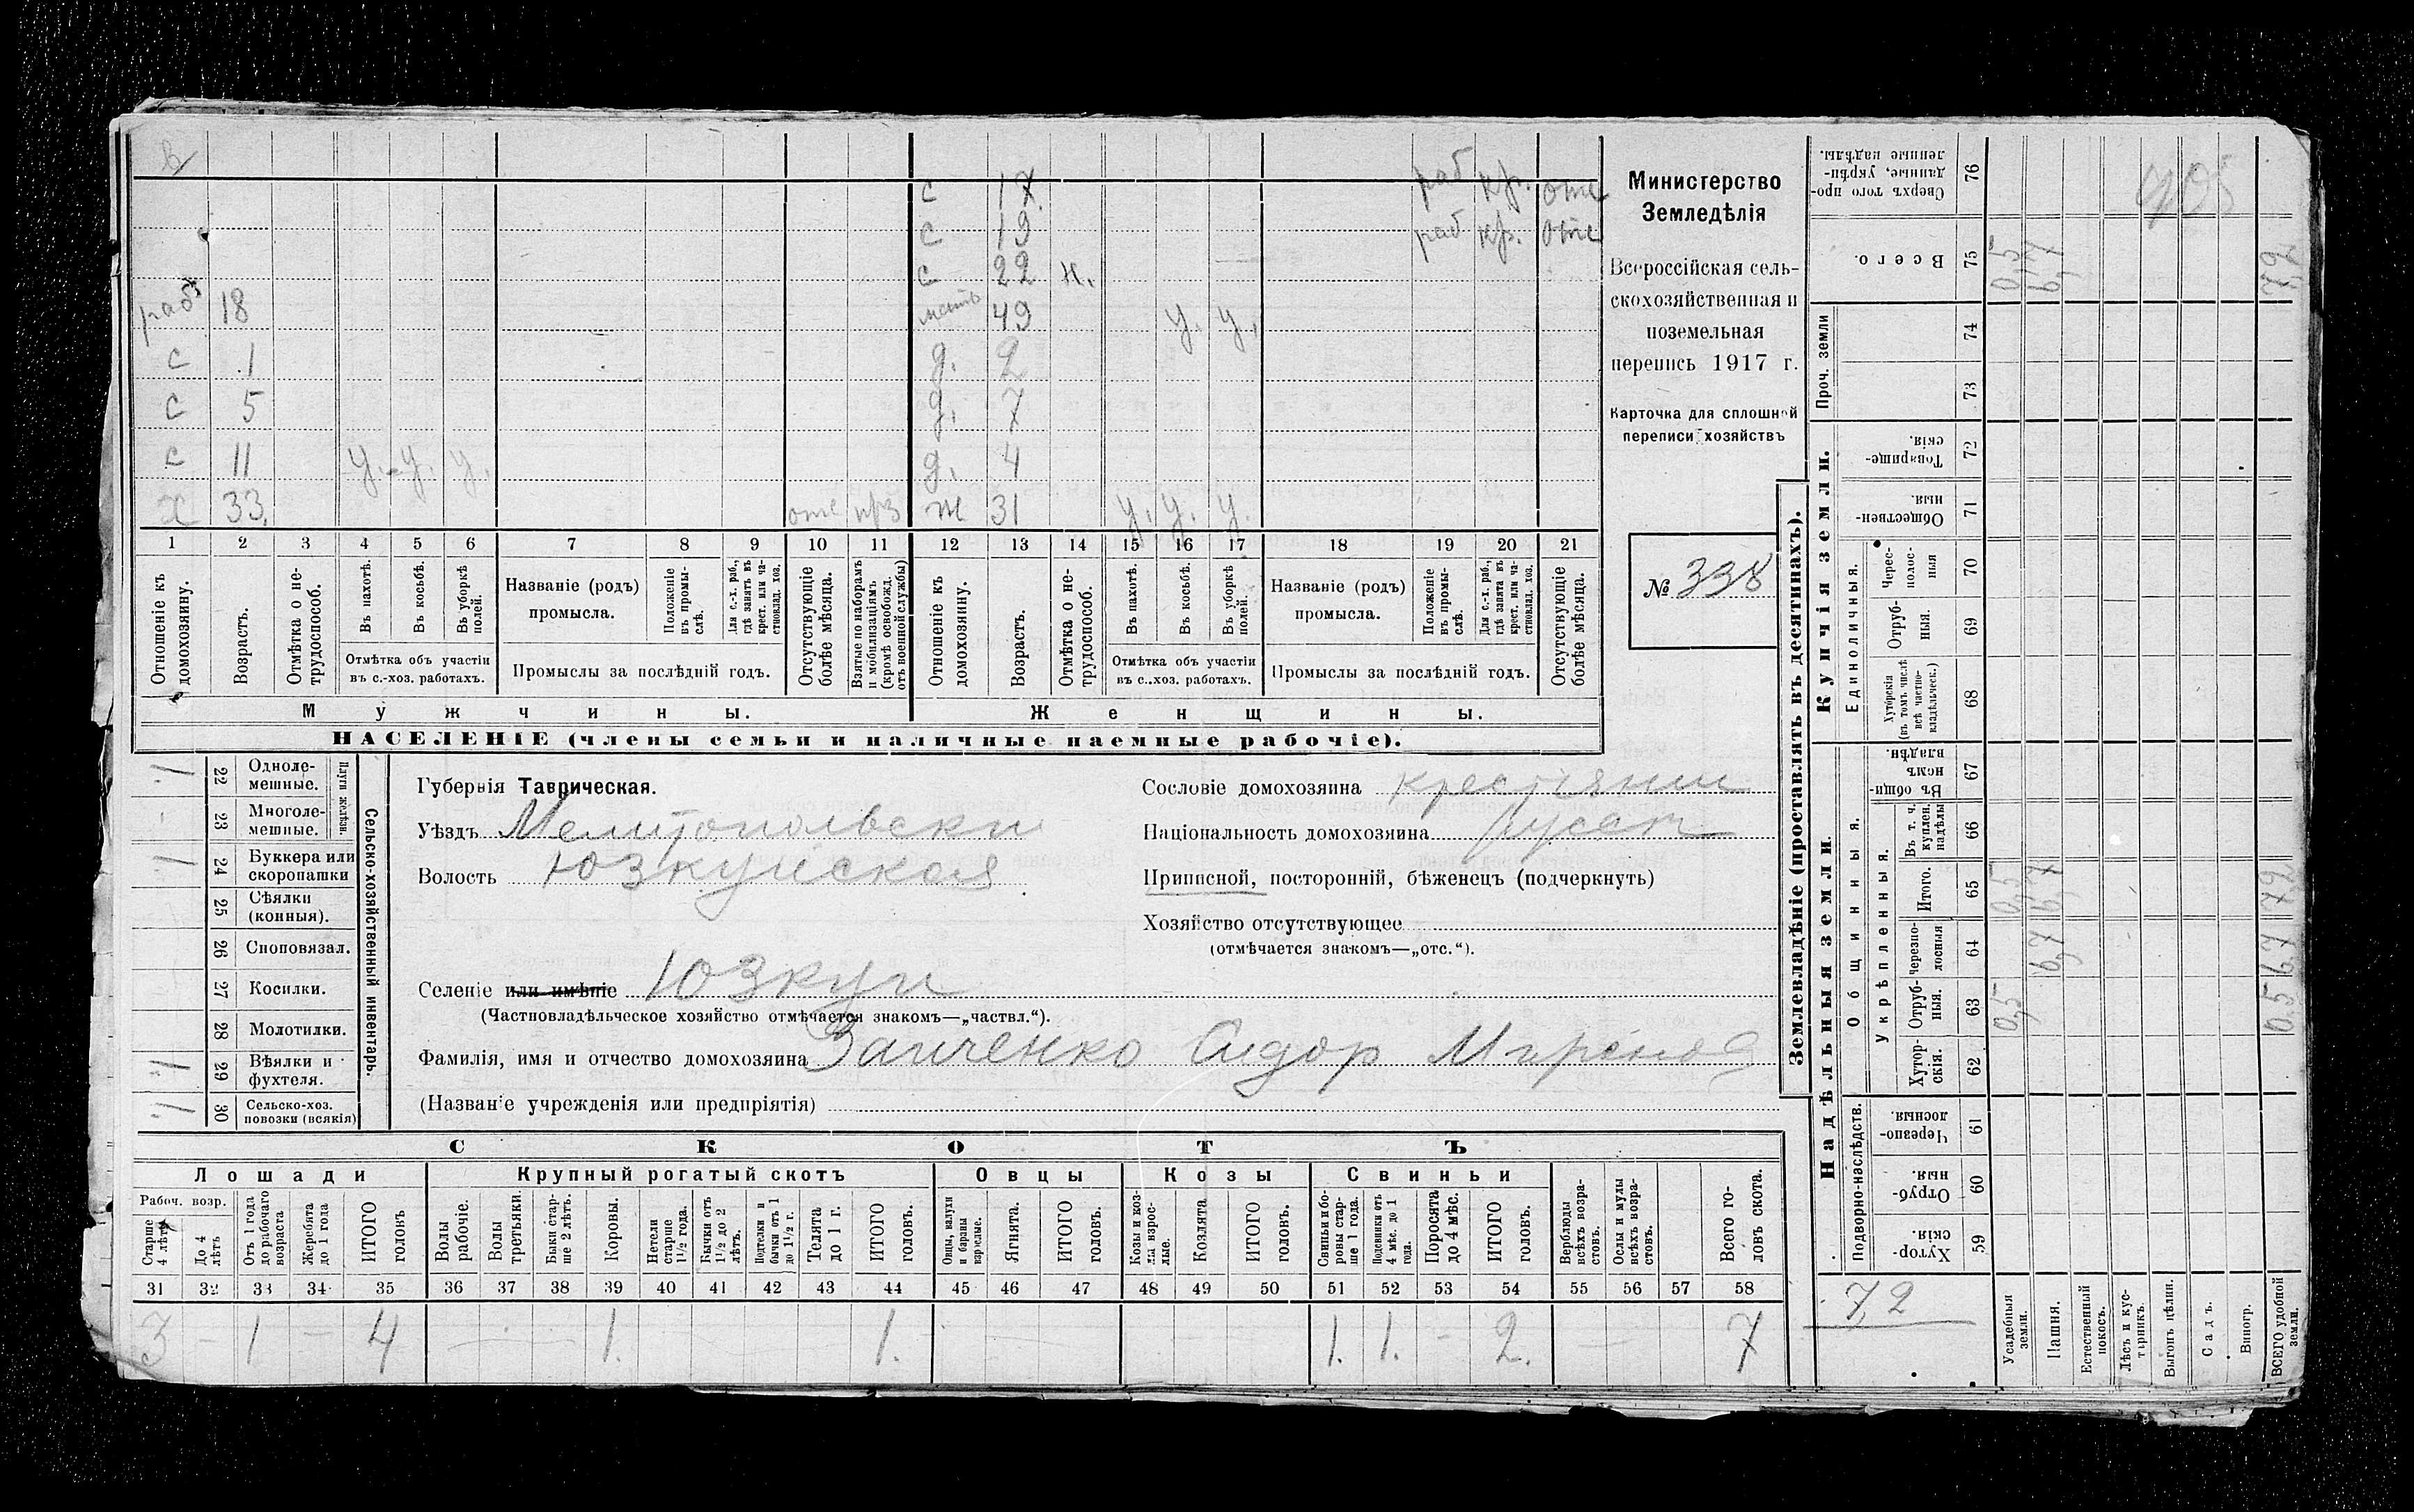 с 17 раб кр. отс
с 19 раб кр. отс
с 22 н.
раб 18 мать 49 у. у.
с 1 д. 2
с 5 д. 7
с 11 у. у. у. д. 4
х 33 отс ж 31 у. у. у.
1 2 3 4 5 6 7 8 9 10 11 12 13 14 15 16 17 18 19 20 21
Отношеніе къ домохозяину.
Возрастъ.
Отмѣтка о нетрудоспособ.
Въ пахотѣ.
Въ косьбѣ.
Въ уборкѣ полей.
Отмѣтка объ участіи
въ с.-хоз. работахъ.
Названіе (родъ)
промысла.
Положеніе въ промыслѣ.
Для с.-х. раб., гдѣ занятъ въ крест. или частновлад. хоз.
Промыслы за послѣдній годъ.
Отсутствующіе болѣе мѣсяца.
Взятые по наборамъ и мобилизаціямъ (кромѣ освобожд. отъ военной службы)
Отношеніе къ домохозяину.
Возрастъ.
Отмѣтка о нетрудоспособ.
Въ пахотѣ.
Въ косьбѣ.
Въ уборкѣ полей.
Отмѣтка объ участіи
въ с..хоз. работахъ.
Названіе (родъ)
промысла.
Положеніе въ промыслѣ.
Для с.-х. раб., гдѣ занятъ въ крест. или частновлад. хоз.
Промыслы за послѣдній годъ.
Отсутствующіе болѣе мѣсяца.
Мужчины. Женщины.
НАСЕЛЕНІЕ (члены семьи и наличные наемные рабочіе).
Министерство
Земледѣлія
Всероссійская сель-
скохозяйственная и
поземельная
перепись 1917 г.
Карточка для сплошной
переписи хозяйствъ
№ 338
Сельско-хозяйственный инвентарь.
Плуги желѣзн.
1 22 Одноле-
мешные.
23 Многоле-
мешные.
1 24 Буккера или
скоропашки
25 Сѣялки
(конныя).
26 Сноповязал.
27 Косилки.
28 Молотилки.
1 29 Вѣялки и
фухтеля.
1 30 Сельско-хоз.
повозки (всякія)
Губернія Таврическая.
Уѣздъ Мелитопольски
Волость Юзкуйская
Селеніе или имѣніе Юзкуи
(Частновладѣльческое хозяйство отмѣчается знакомъ—„частвл.“).
Фамилія, имя и отчество домохозяина Заиченко Сидор Миронов
(Названіе учрежденія или предпріятія)
Сословіе домохозяина крестьянин
Національность домохозяина
Приписной, посторонній, бѣженецъ (подчеркнуть)
Хозяйство отсутствующее
(отмѣчается знакомъ—„отс.“).
СКОТЪ
Лошади Крупный рогатый скотъ Овцы Козы Свиньи
Рабоч. возр.
Старше 4 лѣтъ
До 4 лѣтъ
Отъ 1 года до рабочаго возраста
Жеребята до 1 года
ИТОГО головъ
Волы рабочіе.
Волы третьяки.
Быки старше 2 лѣтъ.
Коровы.
Нетели старше 1½ года.
Бычки отъ 1½ до 2 лѣтъ.
Подтелки и бычки отъ 1 до 1½ г.
Телята до 1 г.
ИТОГО головъ.
Овцы, валухи и бараны взрослые.
Ягнята.
ИТОГО головъ.
Козы и козлы взрослые.
Козлята
ИТОГО головъ.
Свиньи и боровы старше 1 года.
Подсвинки отъ 4 мѣс. до 1 года.
Поросята до 4 мѣс.
ИТОГО головъ.
Верблюды всѣхъ возрастовъ.
Ослы и мулы всѣхъ возрастовъ.
Всего головъ скота.
31 32 33 34 35 36 37 38 39 40 41 42 43 44 45 46 47 48 49 50 51 52 53 54 55 56 57 58
3 – 1 – 4 1. 1. 1. 1. – 2. 7
Землевладѣніе (проставлять въ десятинахъ).
Купчія земли.
Надѣльныя земли.
Сверхъ того проданные, укрѣпленные надѣлы. 76
Всего. 75 0,5 6,7 7,2
Проч. земли 74
73
Товарищескія. 72
Общественныя. 71
Единоличныя.
Чересполосныя 70
Отрубныя. 69
Хуторскія (въ томъ числѣ всѣ частновладѣльческ.) 68
Общинныя.
Въ общинномъ владѣн. 67
Укрѣпленныя.
Въ т. ч. куплен. надѣлы 66
Итого. 65 0,5 6,7 7,2
Черезполосныя 64 6,7 6,7
Отрубныя. 63 0,5 0,5
Хуторскія. 62
Подворно-наслѣдств.
Черезполосныя 61
Отрубныя. 60
Хуторскія 59
7,2
Усадебныя земли.
Пашня.
Естественный покосъ.
Лѣсъ и кустарникъ.
Выгонъ цѣлин.
Садъ.
Виногр.
ВСЕГО удобной земли.